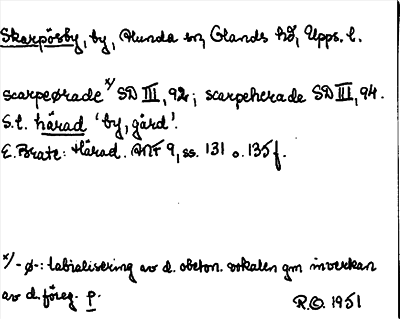 Skarpösby, by, Alunda sn, Olands hd, Upps. l.
scarpeørade x) SD III, 92; scarpeherade SD III, 94.
S.l. härad 'by, gård'.
E. Brate: Härad. ANF 9, ss. 131 o. 135 f.
x) -ø-: labialisering av d. obeton. vokalen gm inverkan
av d. föreg. p.
R.O. 1951